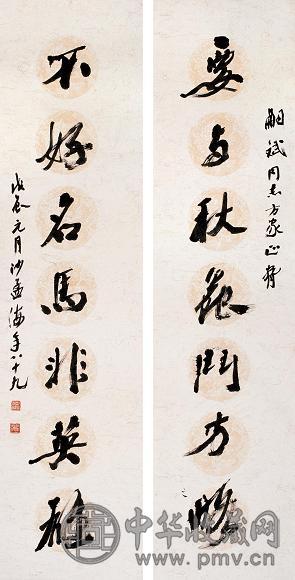 嗣斌同志方家正
要与秋花鬥方略
不好名馬非英雄
戊辰元月沙孟海年八十九
中华收藏网
www.pmv.cn